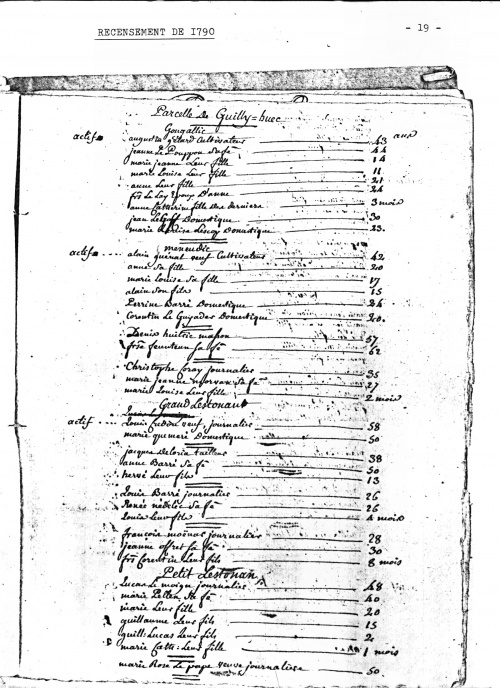 RECENSEMENT DE 1790
- 19 -
Parcelle De Guilly=huec
Gougastic
ans
actif
augustin Cultivateur 43
jeanne Le Pouppon Sa fe 44
marie jeanne Leur fille 14
marie Louise Leur fille 11
anne Leur fille 21
frs Le Loy Epoux D'anne 24
anne Catherine fille des derniers 3 mois
jean Domestique 30
marie Domestique 23
meneudic
actif
alain quenal veuf Cultivateur 42
anne Sa fille 20
marie Louise Sa fille 17
alain Son fils 15
Perrine Barré Domestique 24
Corentin Le Guyader Domestique 20
Denis huitric maçon 57
frse feunteun Sa fe 62
Christophe Coray journalier 35
marie jeanne morvan Sa fe 27
marie Louise Leur fille 2 mois
Grand Lestonan
actif
Louis veuf, journalier 58
marie quemeré Domestique 50
jacques Deloria tailleur 38
anne Barré Sa fe 50
hervé Leur fils 13
Louis Barré journalier 26
Renée nédélec Sa fe 26
Louis Leur fils 4 mois
françois moënas journalier 28
jeanne offret Sa fe 30
frs Corentin Leur fils 8 mois
Petit Lestonan
Lucas Le moign journalier 48
marie Sa fe 40
marie Leur fille 20
guillaume Leur fils 15
guill: Lucas Leur fils
marie Cath: Leur fille 1 mois
marie Rose Le page veuve journaliere 50